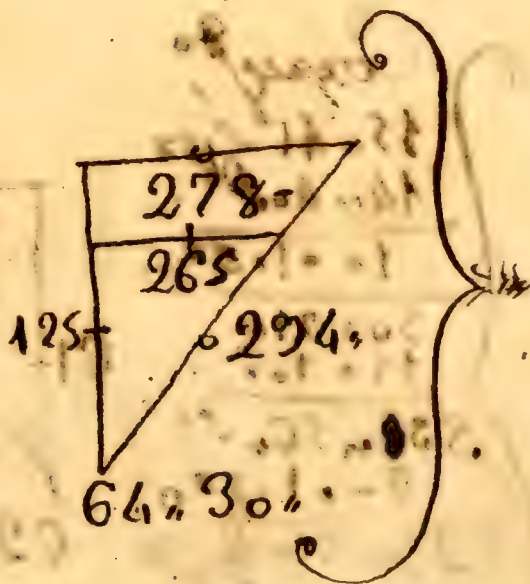 278.
265
125
294.
64„ 30„.